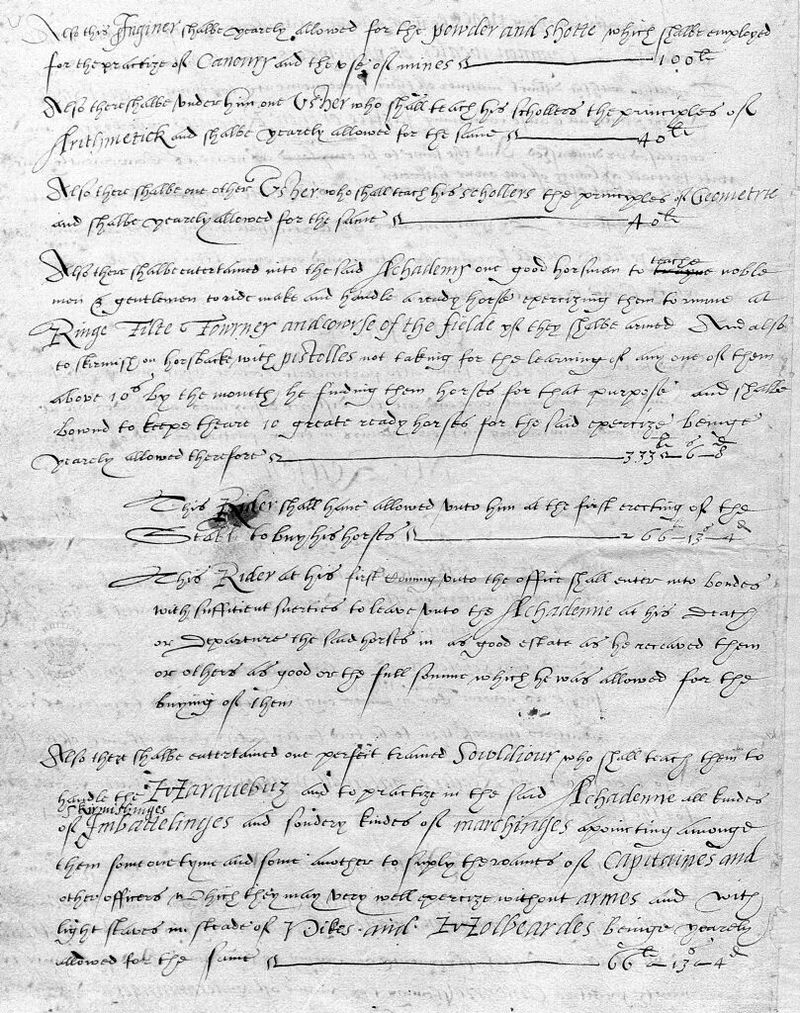 Also this Inginer shalbe yearely allowed for the powder and shotte which shalbe employed
for the practize of Canonry and the vse of mines 100li
Also there shalbe vnder him one Vsher who shall teach his schollers the principles of
Arithmetick and shalbe yearely allowed for the same 40li
Also there shalbe one other Vsher who shall teach his schollers the principles of Geometrie
and shalbe yearely allowed for the same 40li
Also there shalbe entertained into the said Achademy one good horsman to teache noble
men & gentlemen to ride make and handle a ready horse exercizing them to runne at
Ringe Tilte Tourney and course of the fielde yf they shalbe armed And also
to skirmish on horsbake with pistolles not taking for the learning of any one of them
above 10s by the month, he finding them horses for that purpose and shalbe
bownd to keepe theare 10 greate ready horses for the said exercize beinge
yearely allowed therefore 333li 6s 8d
This Rider shall haue allowed vnto him at the first erecting of the
to buy his horses 266li 13s 4d
This Rider at his first Coming vnto the office shall enter into bondes
with suffitient suerties to leaue vnto the Achademie at his Death
or Departure the said horses in as good estate as he receaved them
or others as good or the full somme which he was allowed for the
buying of them
Also there shalbe entertained one perfeit trained Souldiour who shall teach them to
handle the Harquebuz and to practize in the said Achademie all kindes
Skirmishinges
of Imbattelinges and sondery kindes of marchinges apointing amonge
them some one tyme and some another to suply the roumes of Capitaines and
other officers Which they may very well exercize without armes and with
light staves in steade of Pikes and Holbeardes beinge yearely
allowed for the same 66li 13s 4d